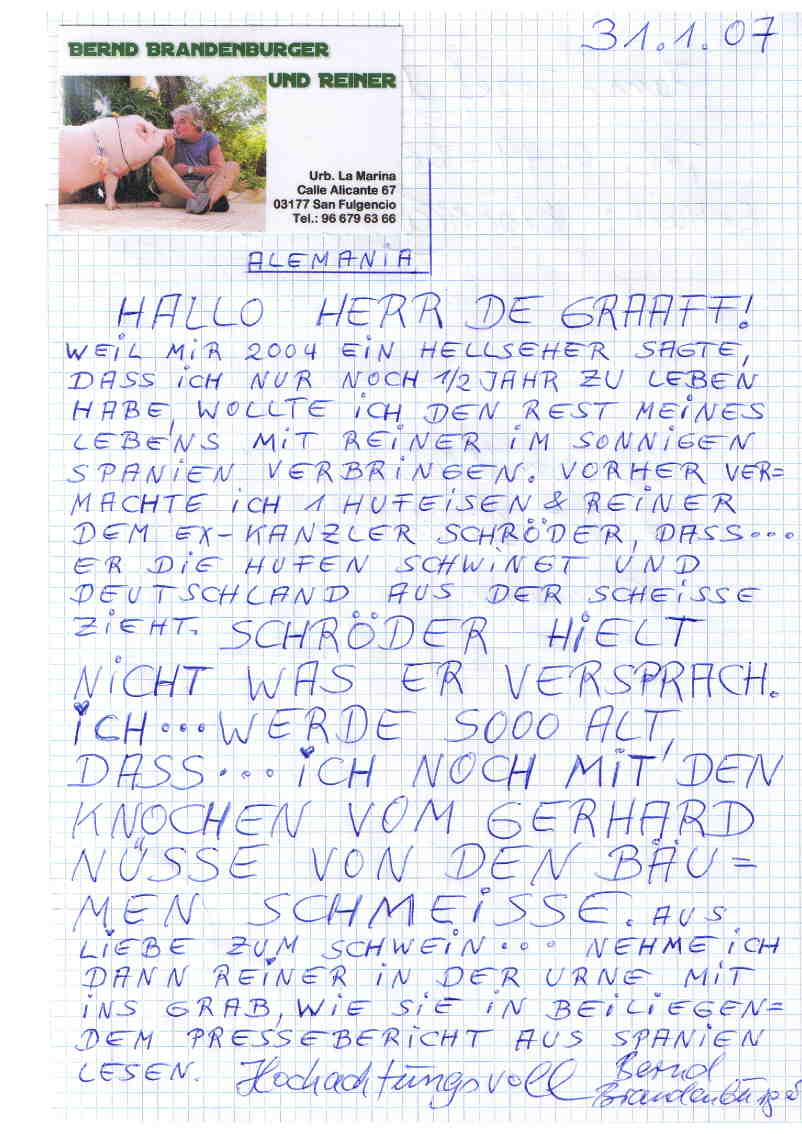 31.1.07
BERND BRANDENBURGER
UND REINER
Urb. La Marina
Calle Alicante 67
03177 San Fulgencio
Tel.: 96 679 63 66
ALEMANiA
HALLO HERR DE GRAAFF!
WEiL MiR 2004 EiN HELLSEHER SAGTE,
DASS iCH NUR NOCH 1/2 JAHR ZU LEBEN
HABE, WOLLTE iCH DEN REST MEiNES
LEBENS MiT REiNER iM SONNiGEN
SPANiEN VERBRiNGEN. VORHER VER=
MACHTE iCH 1 HUFEiSEN & REiNER
DEM EX-KANZLER SCHRÖDER, DASS...
ER DiE HUFEN SCHWiNGT UND
DEUTSCHLAND AUS DER SCHEiSSE
ZiEHT. SCHRÖDER HiELT
NiCHT WAS ER VERSPRACH.
iCH...WERDE SOOO ALT,
DASS...iCH NOCH MiT DEN
KNOCHEN VOM GERHARD
NÜSSE VON DEN BÄU=
MEN SCHMEiSSE. AUS
LiEBE ZUM SCHWEiN... NEHME iCH
DANN REiNER iN DER URNE MiT
iNS GRAB, WiE SiE iN BEiLiEGEN=
DEM PRESSEBERiCHT AUS SPANiEN
LESEN. Hochachtungsvoll Bernd
Brandenburger